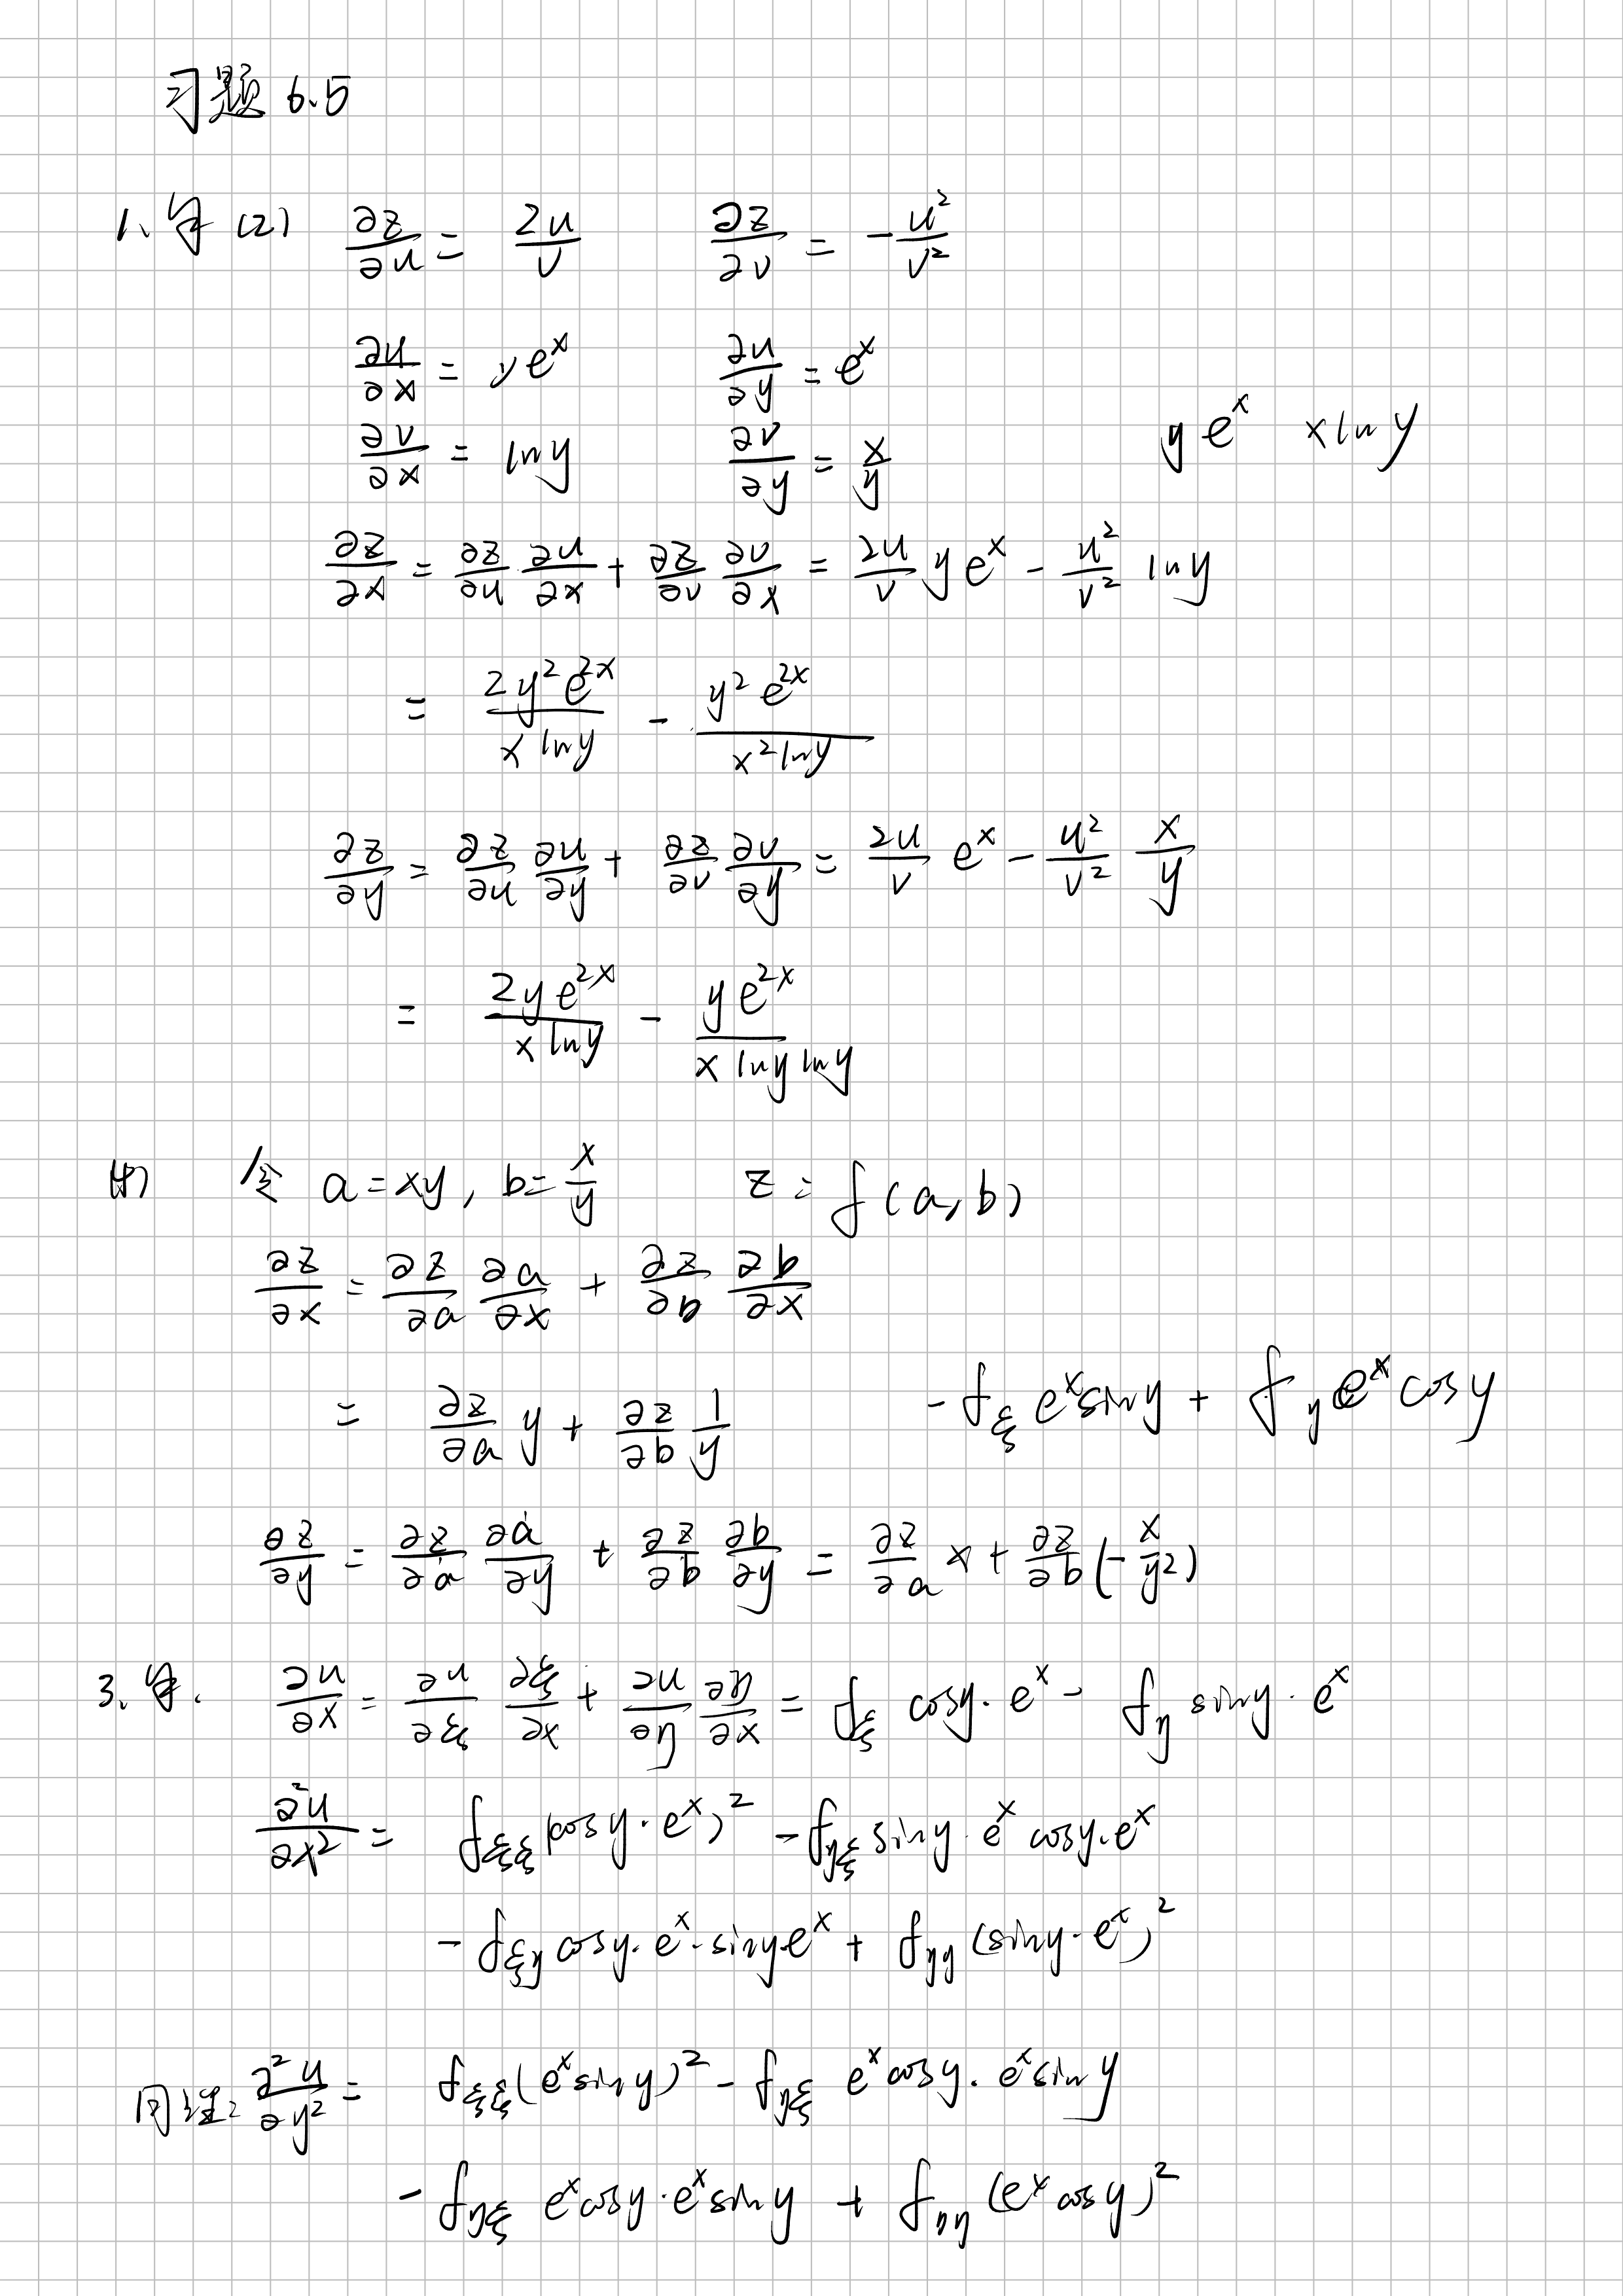 习题 6.5
1、解 (2) ∂z/∂u = 2u/v ∂z/∂v = -u²/v²
∂u/∂x = ye^x ∂u/∂y = e^x
∂v/∂x = lny ∂v/∂y = x/y ye^x xlny
∂z/∂x = ∂z/∂u·∂u/∂x + ∂z/∂v ∂v/∂x = 2u/v ye^x - u²/v² lny
= 2y²e^{2x}/(xlny) - y²e^{2x}/(x²lny)
∂z/∂y = ∂z/∂u ∂u/∂y + ∂z/∂v ∂v/∂y = 2u/v e^x - u²/v² x/y
= 2ye^{2x}/(xlny) - ye^{2x}/(xlny lny)
(4) 令 a=xy, b=x/y z=f(a,b)
∂z/∂x = ∂z/∂a ∂a/∂x + ∂z/∂b ∂b/∂x
= ∂z/∂a y + ∂z/∂b 1/y -f_ξ e^x siny + f_η e^x cosy
∂z/∂y = ∂z/∂a ∂a/∂y + ∂z/∂b ∂b/∂y = ∂z/∂a x + ∂z/∂b (-x/y²)
3、解. ∂u/∂x = ∂u/∂ξ ∂ξ/∂x + ∂u/∂η ∂η/∂x = f_ξ cosy·e^x - f_η siny·e^x
∂²u/∂x² = f_ξξ (cosy·e^x)² - f_ηξ siny·e^x cosy·e^x
- f_ξη cosy·e^x·siny·e^x + f_ηη (siny·e^x)²
同理: ∂²u/∂y² = f_ξξ (e^x siny)² - f_ηξ e^x cosy·e^x siny
- f_ηξ e^x cosy·e^x siny + f_ηη (e^x cosy)²